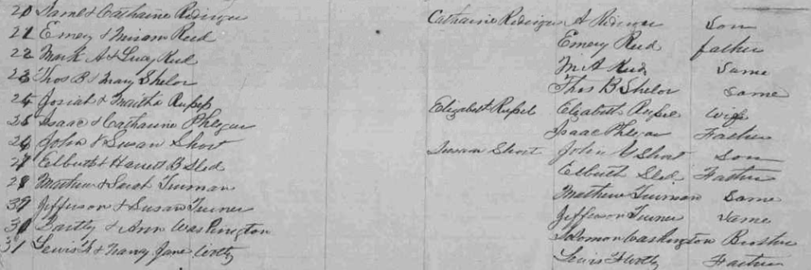 20 James & Catharine Rediger Catharine Rediger A Rediger Son
21 Emery & Miriam Reed Emery Reed father
22 Mark A & Lucy Reed M A Reed Same
23 Thos B & Mary Shelor Thos B Shelor Same
24 Josiah & Russel Elizabeth Russel Elizabeth Russel Wife
25 Isaac & Catharine Phlegar Isaac Phlegar Father
26 John & Susan Short Susan Short John Short Son
27 & Harriett B Sled Sled Father
28 Matthew & Sarah Truman Matthew Truman Same
29 Jefferson & Susan Turner Jefferson Turner Same
30 & Ann Washington Solomon Washington Brother
31 Lewis & Nancy Jane Lewis Father